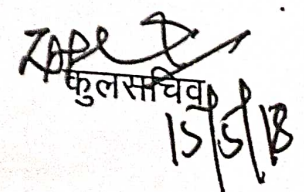 कुलसचिव
15/5/18